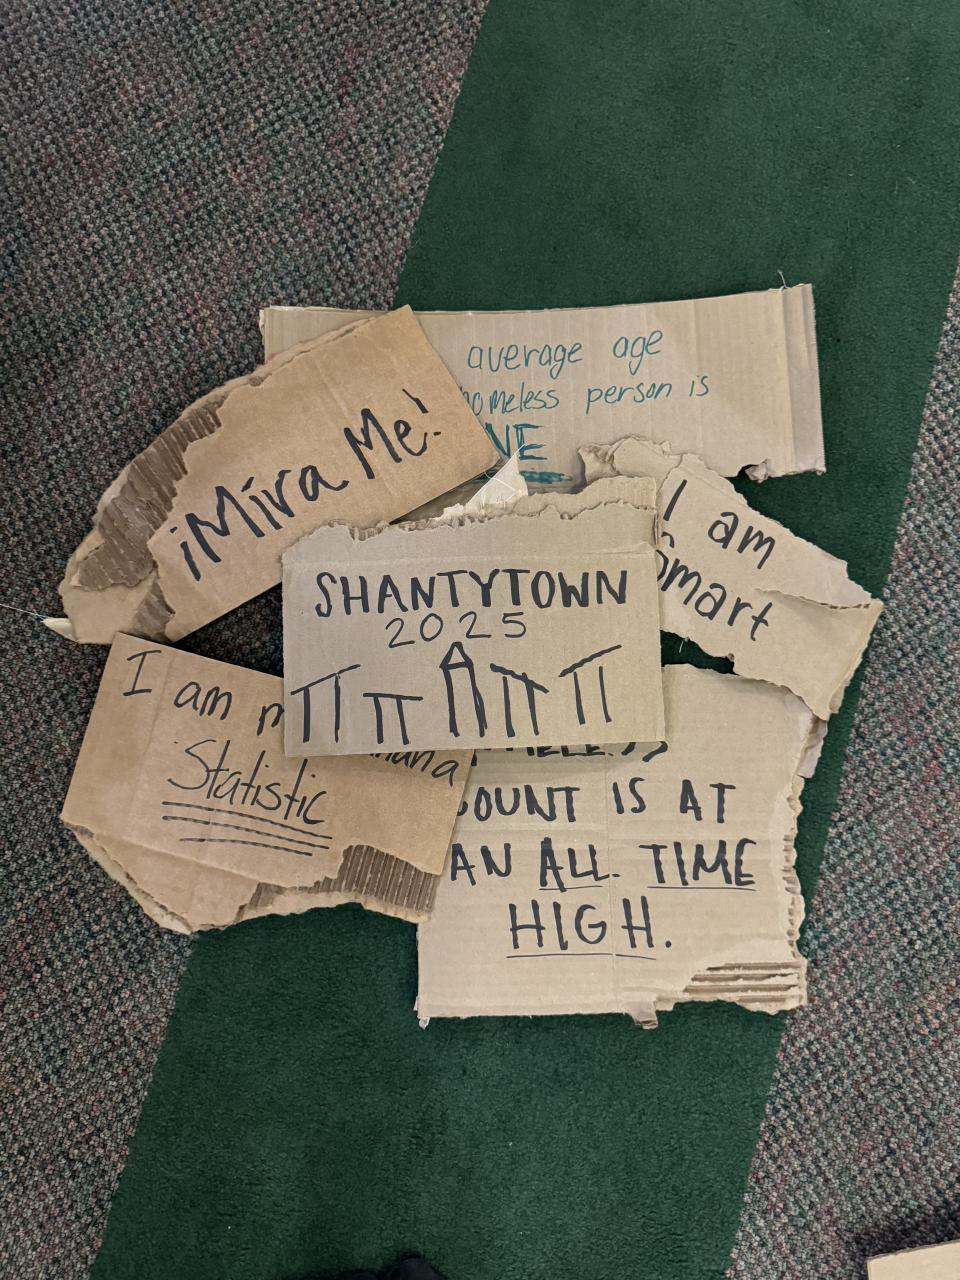 average age
homeless person is
¡Mira Me!
I am
Smart
SHANTYTOWN
2025
I am
Statistic
COUNT IS AT
AN ALL TIME
HIGH.